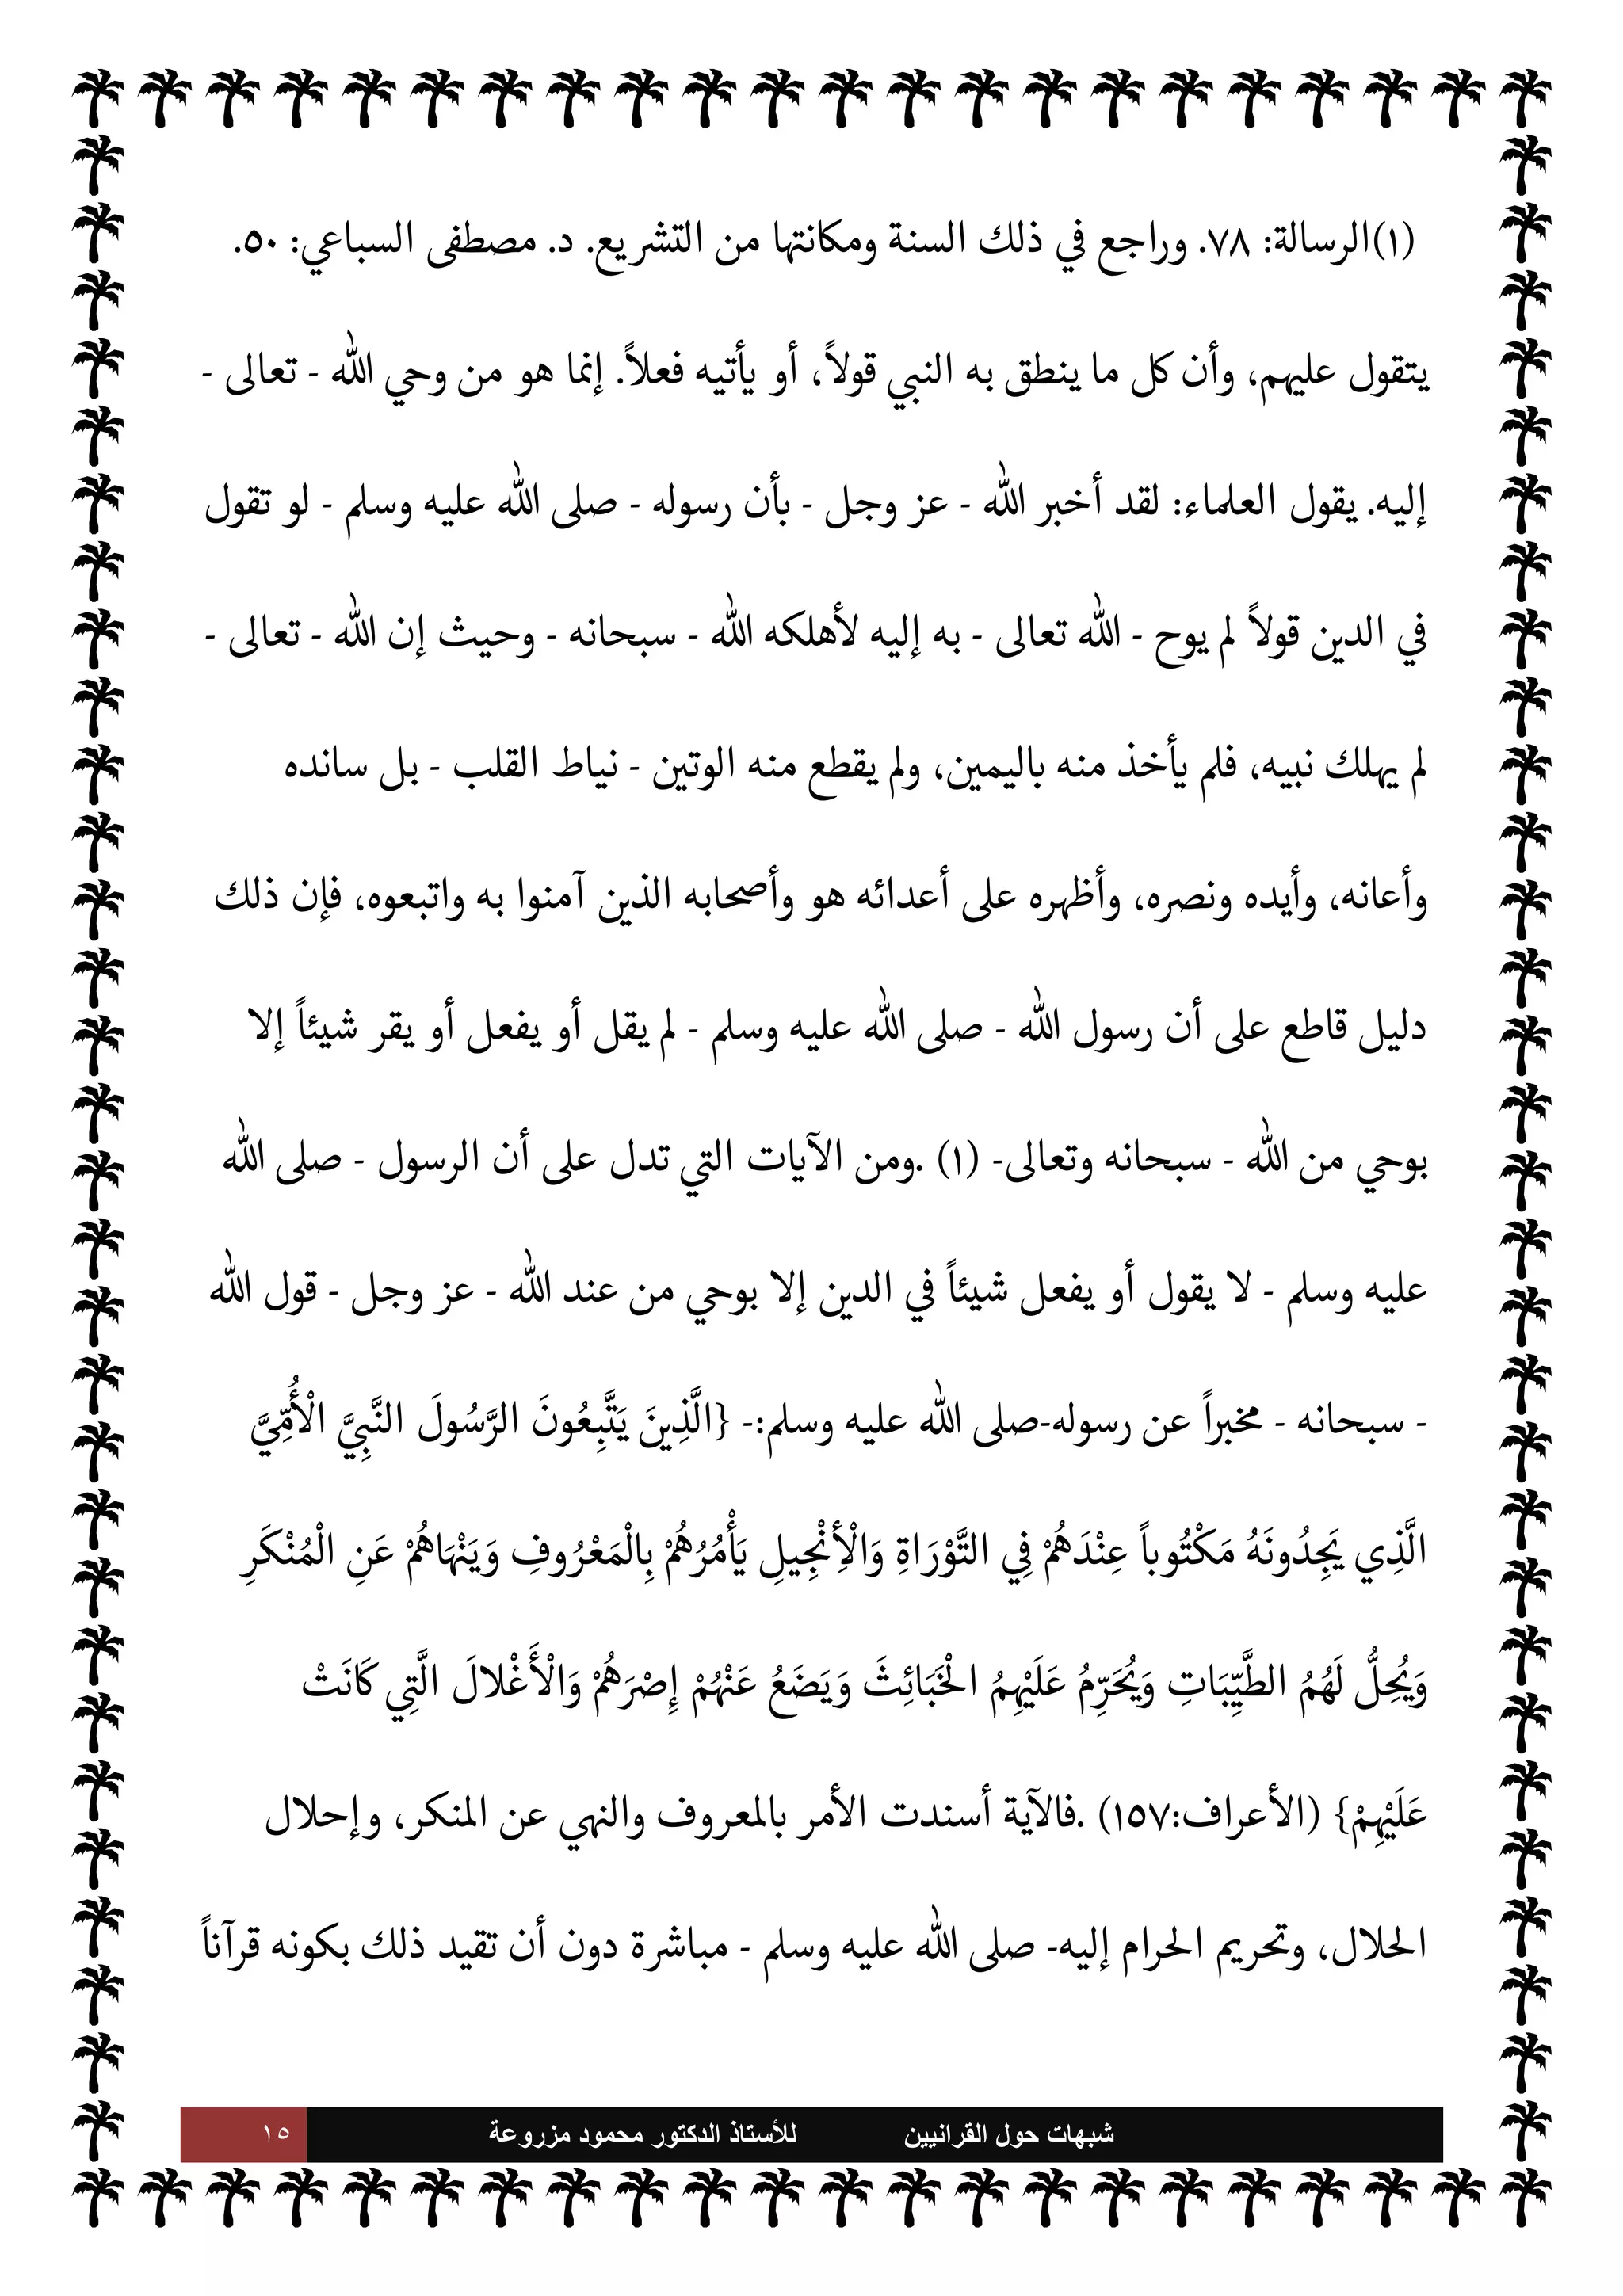 (١)الرسالة: ٧٨. وراجع في ذلك السنة ومكانتها من التشريع. د. مصطفى السباعي: ٥٠.
يتقول عليهم، وأن كل ما ينطق به النبي قولاً، أو يأتيه فعلاً. إنما هو من وحي الله - تعالى -
إليه. يقول العلماء: لقد أخبر الله - عز وجل - بأن رسوله - صلى الله عليه وسلم - لو تقول
في الدين قولاً لم يوح - الله تعالى - به إليه لأهلكه الله - سبحانه - وحيث إن الله - تعالى -
لم يهلك نبيه، فلم يأخذ منه باليمين، ولم يقطع منه الوتين - نياط القلب - بل سانده
وأعانه، وأيده ونصره، وأظهره على أعدائه هو وأصحابه الذين آمنوا به واتبعوه، فإن ذلك
دليل قاطع على أن رسول الله - صلى الله عليه وسلم - لم يقل أو يفعل أو يقر شيئاً إلا
بوحي من الله - سبحانه وتعالى- (١) .ومن الآيات التي تدل على أن الرسول - صلى الله
عليه وسلم - لا يقول أو يفعل شيئاً في الدين إلا بوحي من عند الله - عز وجل - قول الله
- سبحانه - مخبراً عن رسوله-صلى الله عليه وسلم:- {الَّذِينَ يَتَّبِعُونَ الرَّسُولَ النَّبِيَّ الْأُمِّيَّ
الَّذِي يَجِدُونَهُ مَكْتُوباً عِنْدَهُمْ فِي التَّوْرَاةِ وَالْأِنْجِيلِ يَأْمُرُهُمْ بِالْمَعْرُوفِ وَيَنْهَاهُمْ عَنِ الْمُنْكَرِ
وَيُحِلُّ لَهُمُ الطَّيِّبَاتِ وَيُحَرِّمُ عَلَيْهِمُ الْخَبَائِثَ وَيَضَعُ عَنْهُمْ إِصْرَهُمْ وَالْأَغْلالَ الَّتِي كَانَتْ
عَلَيْهِمْ} (الأعراف:١٥٧) .فالآية أسندت الأمر بالمعروف والنهي عن المنكر، وإحلال
الحلال، وتحريم الحرام إليه- صلى الله عليه وسلم - مباشرة دون أن تقيد ذلك بكونه قرآناً
شبهات حول القرانيين للأستاذ الدكتور محمود مزروعة ١٥